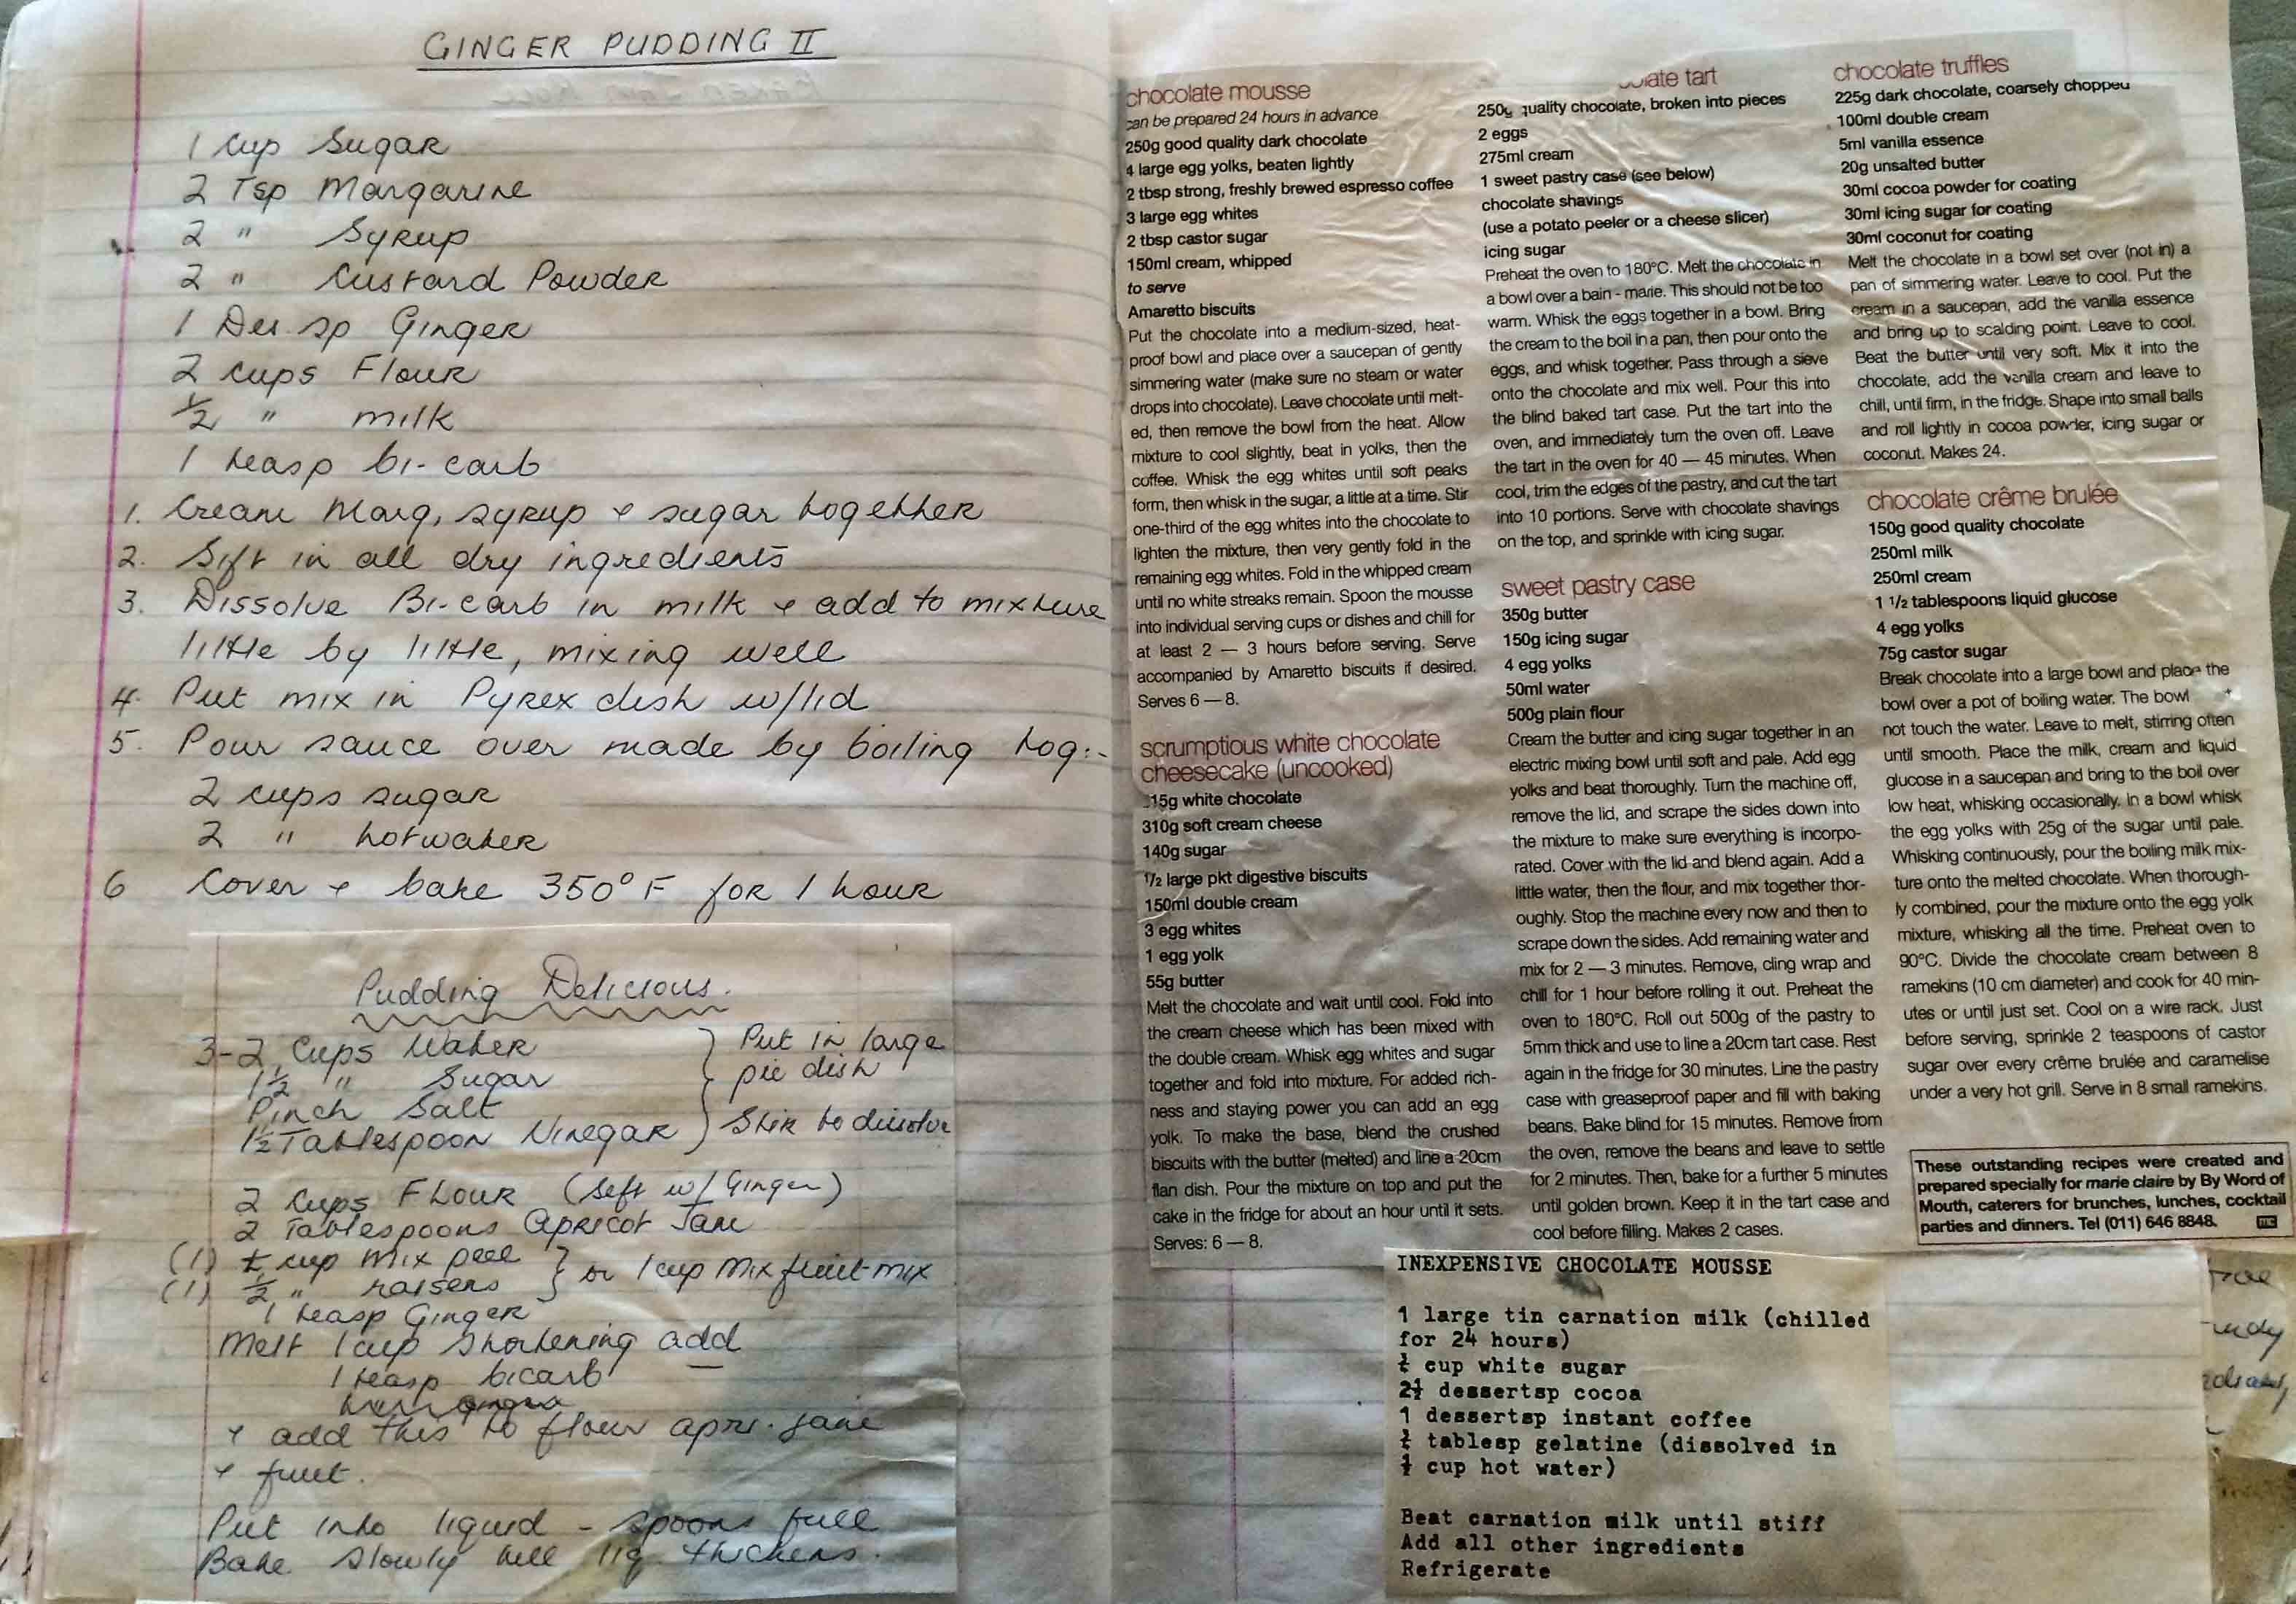 GINGER PUDDING II
1 Cup Sugar
2 Tsp Margarine
2 " Syrup
2 " Custard Powder
1 Des.sp Ginger
2 cups Flour
1/2 " milk
1 teasp bi-carb
1. Cream Marg, syrup + sugar together
2. Sift in all dry ingredients
3. Dissolve Bi-carb in milk + add to mixture
little by little, mixing well
4. Put mix in Pyrex dish w/lid
5. Pour sauce over made by boiling tog:-
2 cups sugar
2 " hotwater
6 Cover + bake 350°F for 1 hour
Pudding Delicious.
3-2 Cups Water } Put in large
1 1/2 " Sugar pie dish
Pinch Salt
1 1/2 Tablespoon Vinegar } Stir to dissolve
2 Cups Flour (Sift w/ Ginger)
2 Tablespoons Apricot Jam
(1) 1/2 cup mix peel } or 1 cup Mix fruit mix
(1) 1/2 " raisens
1 teasp Ginger
Melt 1 cup Shortening add
1 teasp bicarb
+ add this to flour apri. jam
+ fruit.
Put into liquid - spoons full
Bake slowly till liq. thickens.
chocolate mousse
can be prepared 24 hours in advance
250g good quality dark chocolate
4 large egg yolks, beaten lightly
2 tbsp strong, freshly brewed espresso coffee
3 large egg whites
2 tbsp castor sugar
150ml cream, whipped
to serve
Amaretto biscuits
Put the chocolate into a medium-sized, heat-
proof bowl and place over a saucepan of gently
simmering water (make sure no steam or water
drops into chocolate). Leave chocolate until melt-
ed, then remove the bowl from the heat. Allow
mixture to cool slightly, beat in yolks, then the
coffee. Whisk the egg whites until soft peaks
form, then whisk in the sugar, a little at a time. Stir
one-third of the egg whites into the chocolate to
lighten the mixture, then very gently fold in the
remaining egg whites. Fold in the whipped cream
until no white streaks remain. Spoon the mousse
into individual serving cups or dishes and chill for
at least 2 — 3 hours before serving. Serve
accompanied by Amaretto biscuits if desired.
Serves 6 — 8.
scrumptious white chocolate
cheesecake (uncooked)
15g white chocolate
310g soft cream cheese
140g sugar
1/2 large pkt digestive biscuits
150ml double cream
3 egg whites
1 egg yolk
55g butter
Melt the chocolate and wait until cool. Fold into
the cream cheese which has been mixed with
the double cream. Whisk egg whites and sugar
together and fold into mixture. For added rich-
ness and staying power you can add an egg
yolk. To make the base, blend the crushed
biscuits with the butter (melted) and line a 20cm
flan dish. Pour the mixture on top and put the
cake in the fridge for about an hour until it sets.
Serves: 6 — 8.
late tart
250g quality chocolate, broken into pieces
2 eggs
275ml cream
1 sweet pastry case (see below)
chocolate shavings
(use a potato peeler or a cheese slicer)
icing sugar
Preheat the oven to 180°C. Melt the chocolate in
a bowl over a bain - marie. This should not be too
warm. Whisk the eggs together in a bowl. Bring
the cream to the boil in a pan, then pour onto the
eggs, and whisk together. Pass through a sieve
onto the chocolate and mix well. Pour this into
the blind baked tart case. Put the tart into the
oven, and immediately turn the oven off. Leave
the tart in the oven for 40 — 45 minutes. When
cool, trim the edges of the pastry, and cut the tart
into 10 portions. Serve with chocolate shavings
on the top, and sprinkle with icing sugar.
sweet pastry case
350g butter
150g icing sugar
4 egg yolks
50ml water
500g plain flour
Cream the butter and icing sugar together in an
electric mixing bowl until soft and pale. Add egg
yolks and beat thoroughly. Turn the machine off,
remove the lid, and scrape the sides down into
the mixture to make sure everything is incorpo-
rated. Cover with the lid and blend again. Add a
little water, then the flour, and mix together thor-
oughly. Stop the machine every now and then to
scrape down the sides. Add remaining water and
mix for 2 — 3 minutes. Remove, cling wrap and
chill for 1 hour before rolling it out. Preheat the
oven to 180°C. Roll out 500g of the pastry to
5mm thick and use to line a 20cm tart case. Rest
again in the fridge for 30 minutes. Line the pastry
case with greaseproof paper and fill with baking
beans. Bake blind for 15 minutes. Remove from
the oven, remove the beans and leave to settle
for 2 minutes. Then, bake for a further 5 minutes
until golden brown. Keep it in the tart case and
cool before filling. Makes 2 cases.
chocolate truffles
225g dark chocolate, coarsely chopped
100ml double cream
5ml vanilla essence
20g unsalted butter
30ml cocoa powder for coating
30ml icing sugar for coating
30ml coconut for coating
Melt the chocolate in a bowl set over (not in) a
pan of simmering water. Leave to cool. Put the
cream in a saucepan, add the vanilla essence
and bring up to scalding point. Leave to cool.
Beat the butter until very soft. Mix it into the
chocolate, add the vanilla cream and leave to
chill, until firm, in the fridge. Shape into small balls
and roll lightly in cocoa powder, icing sugar or
coconut. Makes 24.
chocolate crême brulée
150g good quality chocolate
250ml milk
250ml cream
1 1/2 tablespoons liquid glucose
4 egg yolks
75g castor sugar
Break chocolate into a large bowl and place the
bowl over a pot of boiling water. The bowl
not touch the water. Leave to melt, stirring often
until smooth. Place the milk, cream and liquid
glucose in a saucepan and bring to the boil over
low heat, whisking occasionally. In a bowl whisk
the egg yolks with 25g of the sugar until pale.
Whisking continuously, pour the boiling milk mix-
ture onto the melted chocolate. When thorough-
ly combined, pour the mixture onto the egg yolk
mixture, whisking all the time. Preheat oven to
90°C. Divide the chocolate cream between 8
ramekins (10 cm diameter) and cook for 40 min-
utes or until just set. Cool on a wire rack. Just
before serving, sprinkle 2 teaspoons of castor
sugar over every crême brulée and caramelise
under a very hot grill. Serve in 8 small ramekins.
These outstanding recipes were created and
prepared specially for marie claire by By Word of
Mouth, caterers for brunches, lunches, cocktail
parties and dinners. Tel (011) 646 8848. mc
INEXPENSIVE CHOCOLATE MOUSSE
1 large tin carnation milk (chilled
for 24 hours)
cup white sugar
dessertsp cocoa
1 dessertsp instant coffee
tablesp gelatine (dissolved in
cup hot water)
Beat carnation milk until stiff
Add all other ingredients
Refrigerate